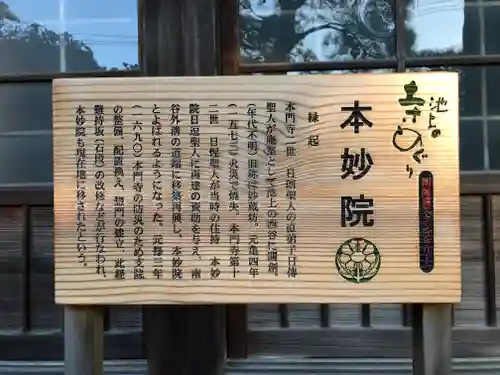 池上の
寺めぐり
本妙院
縁起
本門寺二世 日朗聖人の直弟子日傳
聖人が庵室として池上の西谷に開創。
(年代不明)旧称は妙蔵坊。元亀四年
(一五七三)火災で焼失。本門寺第十
二世 日惺聖人が当時の住持 本妙
院日涅聖人に再建の援助を与え、南
谷外溝の道端に移築再興し、本妙院
とよばれるようになった。元禄三年
(一六九〇)本門寺の防災のため支院
の整備、配置換え、惣門の建立、此経
難持坂(石段)の改修などが行なわれ、
本妙院も現在地に移されたという。